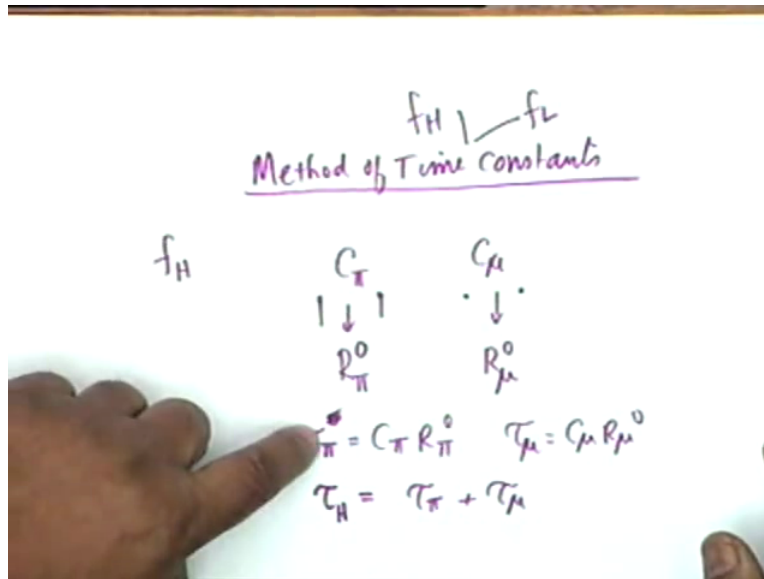 f_H f_L
Method of Time Constants
f_H C_π C_μ
R_π^0 R_μ^0
_π = C_π R_π^0 τ_μ = C_μ R_μ^0
τ_H = τ_π + τ_μ